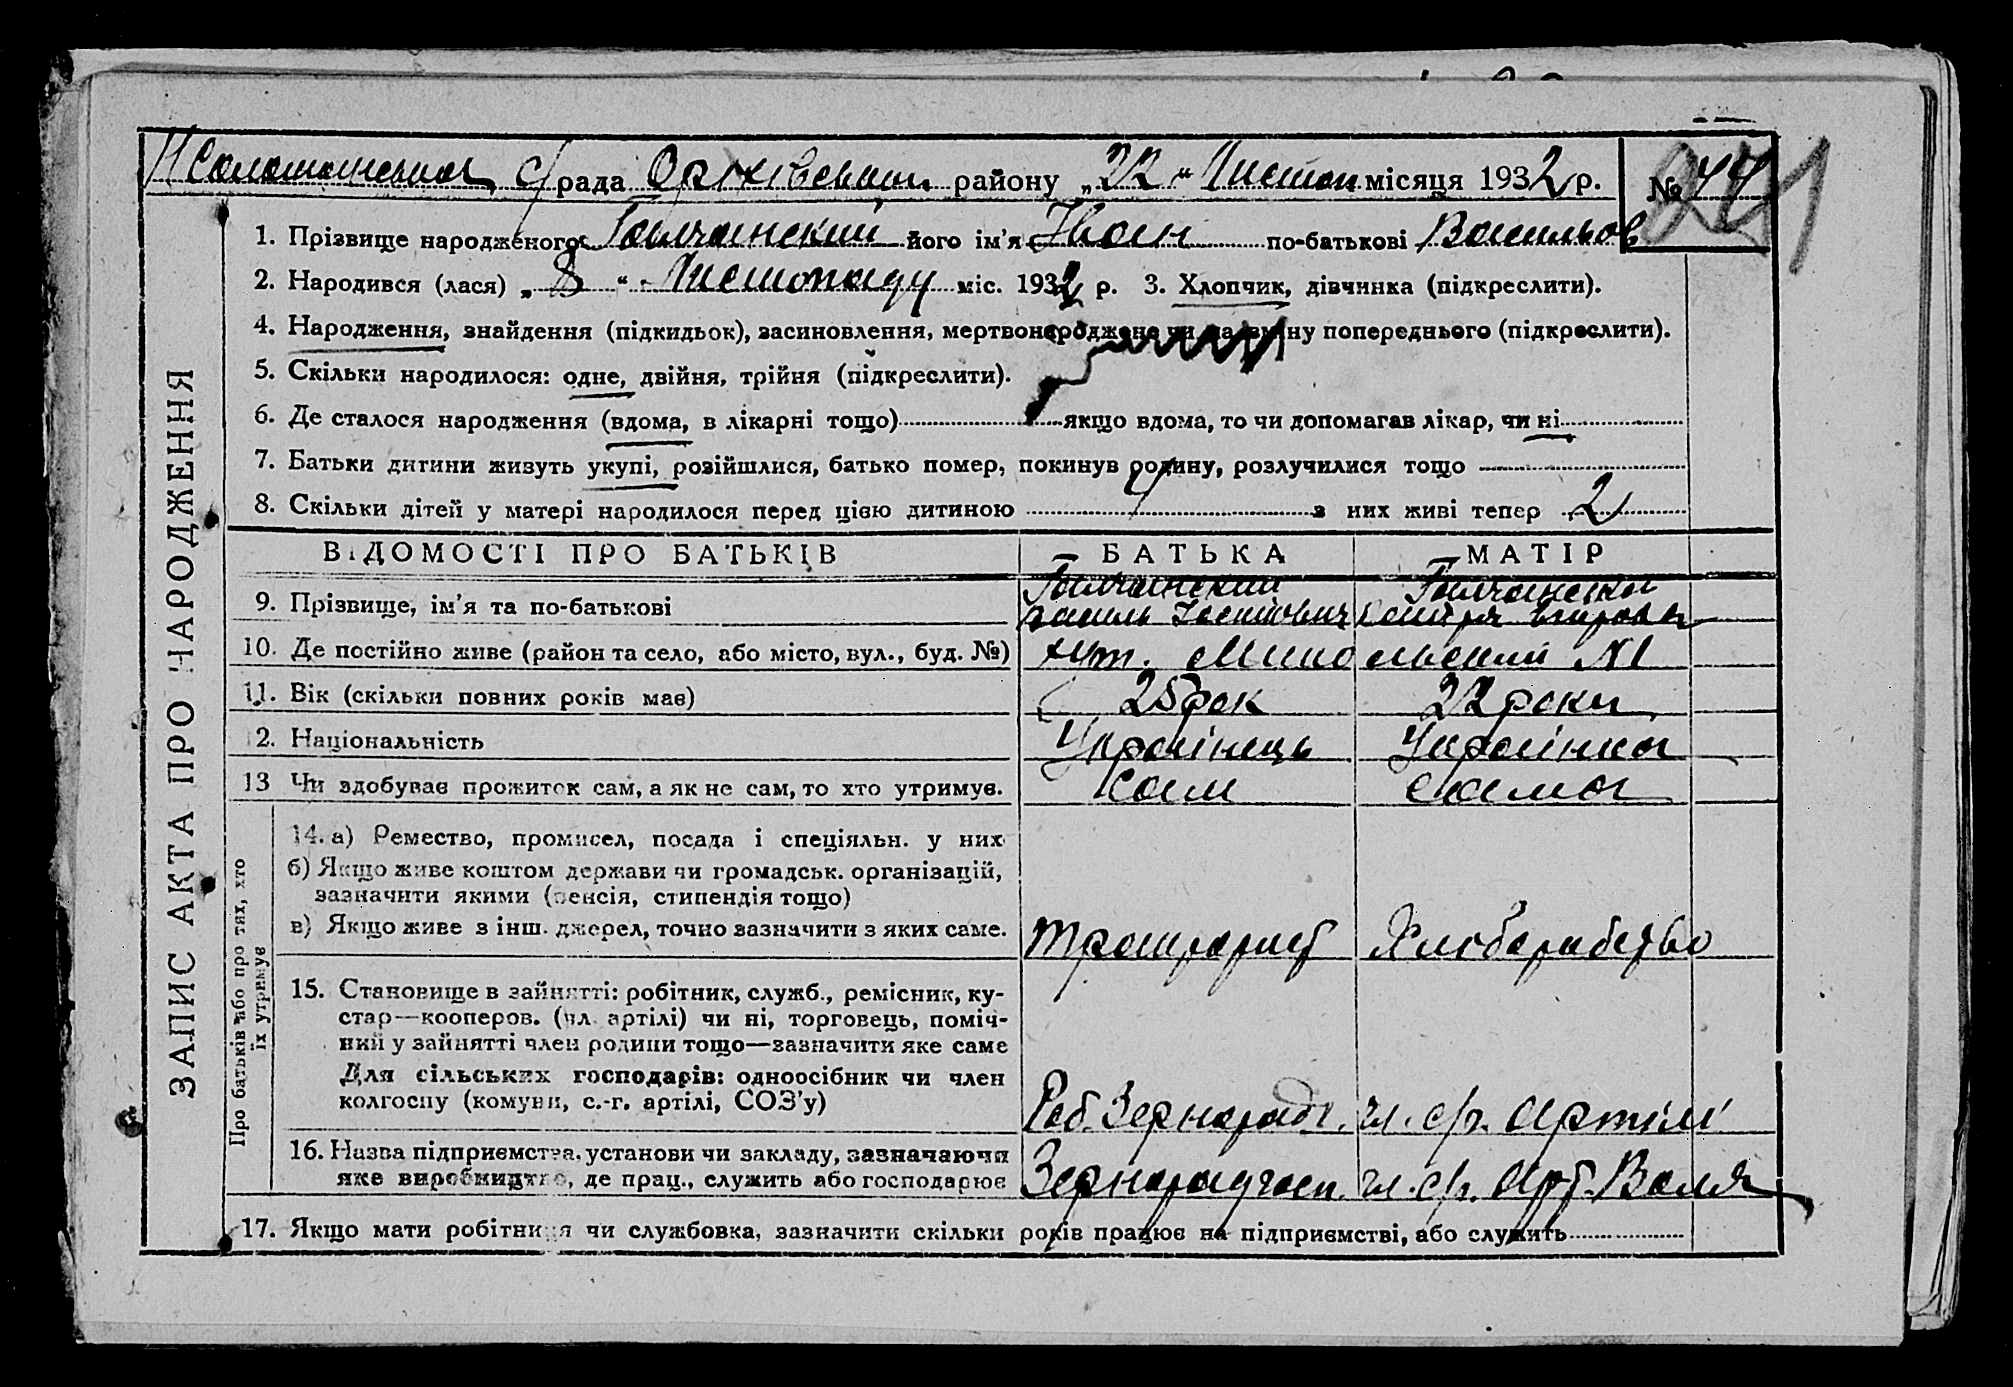 с/рада Оріхівськ. району „22“ Листоп місяця 1932 р. № 44
241
1. Прізвище народженого Галчанский його ім’я Іван по-батькові Васильов
2. Народився (лася) „8“ Листопаду міс. 1932 р. 3. Хлопчик, дівчинка (підкреслити).
4. Народження, знайдення (підкидьок), засиновлення, мертвонароджене чи на зміну попереднього (підкреслити).
5. Скільки народилося: одне, двійня, трійня (підкреслити).
6. Де сталося народження (вдома, в лікарні тощо) якщо вдома, то чи допомагав лікар, чи ні
7. Батьки дитини живуть укупі, розійшлися, батько помер, покинув родину, розлучилися тощо
8. Скільки дітей у матері народилося перед цією дитиною з них живі тепер 2
ЗАПИС АКТА ПРО НАРОДЖЕННЯ
ВІДОМОСТІ ПРО БАТЬКІВ БАТЬКА МАТІР
Галчанский Галчанська
9. Прізвище, ім’я та по-батькові Василь
10. Де постійно живе (район та село, або місто, вул., буд. №) хут. №1
11. Вік (скільки повних років має) 25 рок 22 роки
12. Національність Українець Українка
13 Чи здобуває прожиток сам, а як не сам, то хто утримує. Сам сама
Про батьків або про тих, хто їх утримує
14. а) Ремество, промисел, посада і спеціяльн. у них
б) Якщо живе коштом держави чи громадськ. організацій,
зазначити якими (пенсія, стипендія тощо)
в) Якщо живе з інш. джерел, точно зазначити з яких саме. Хліборобство
15. Становище в зайнятті: робітник, служб., ремісник, ку-
стар—кооперов. (чл. артілі) чи ні, торговець, поміч-
ний у зайнятті член родини тощо—зазначити яке саме
Для сільських господарів: одноосібник чи член
колгоспу (комуни, с.-г. артілі, СОЗ’у) Роб. Зернорадг. чл. с/г. Артілі
16. Назва підприємства, установи чи закладу, зазначаючи
яке виробництво, де прац., служить або господарює Зернорадгосп. чл. с/г. Арт. Воля
17. Якщо мати робітниця чи службовка, зазначити скільки років працює на підприємстві, або служить